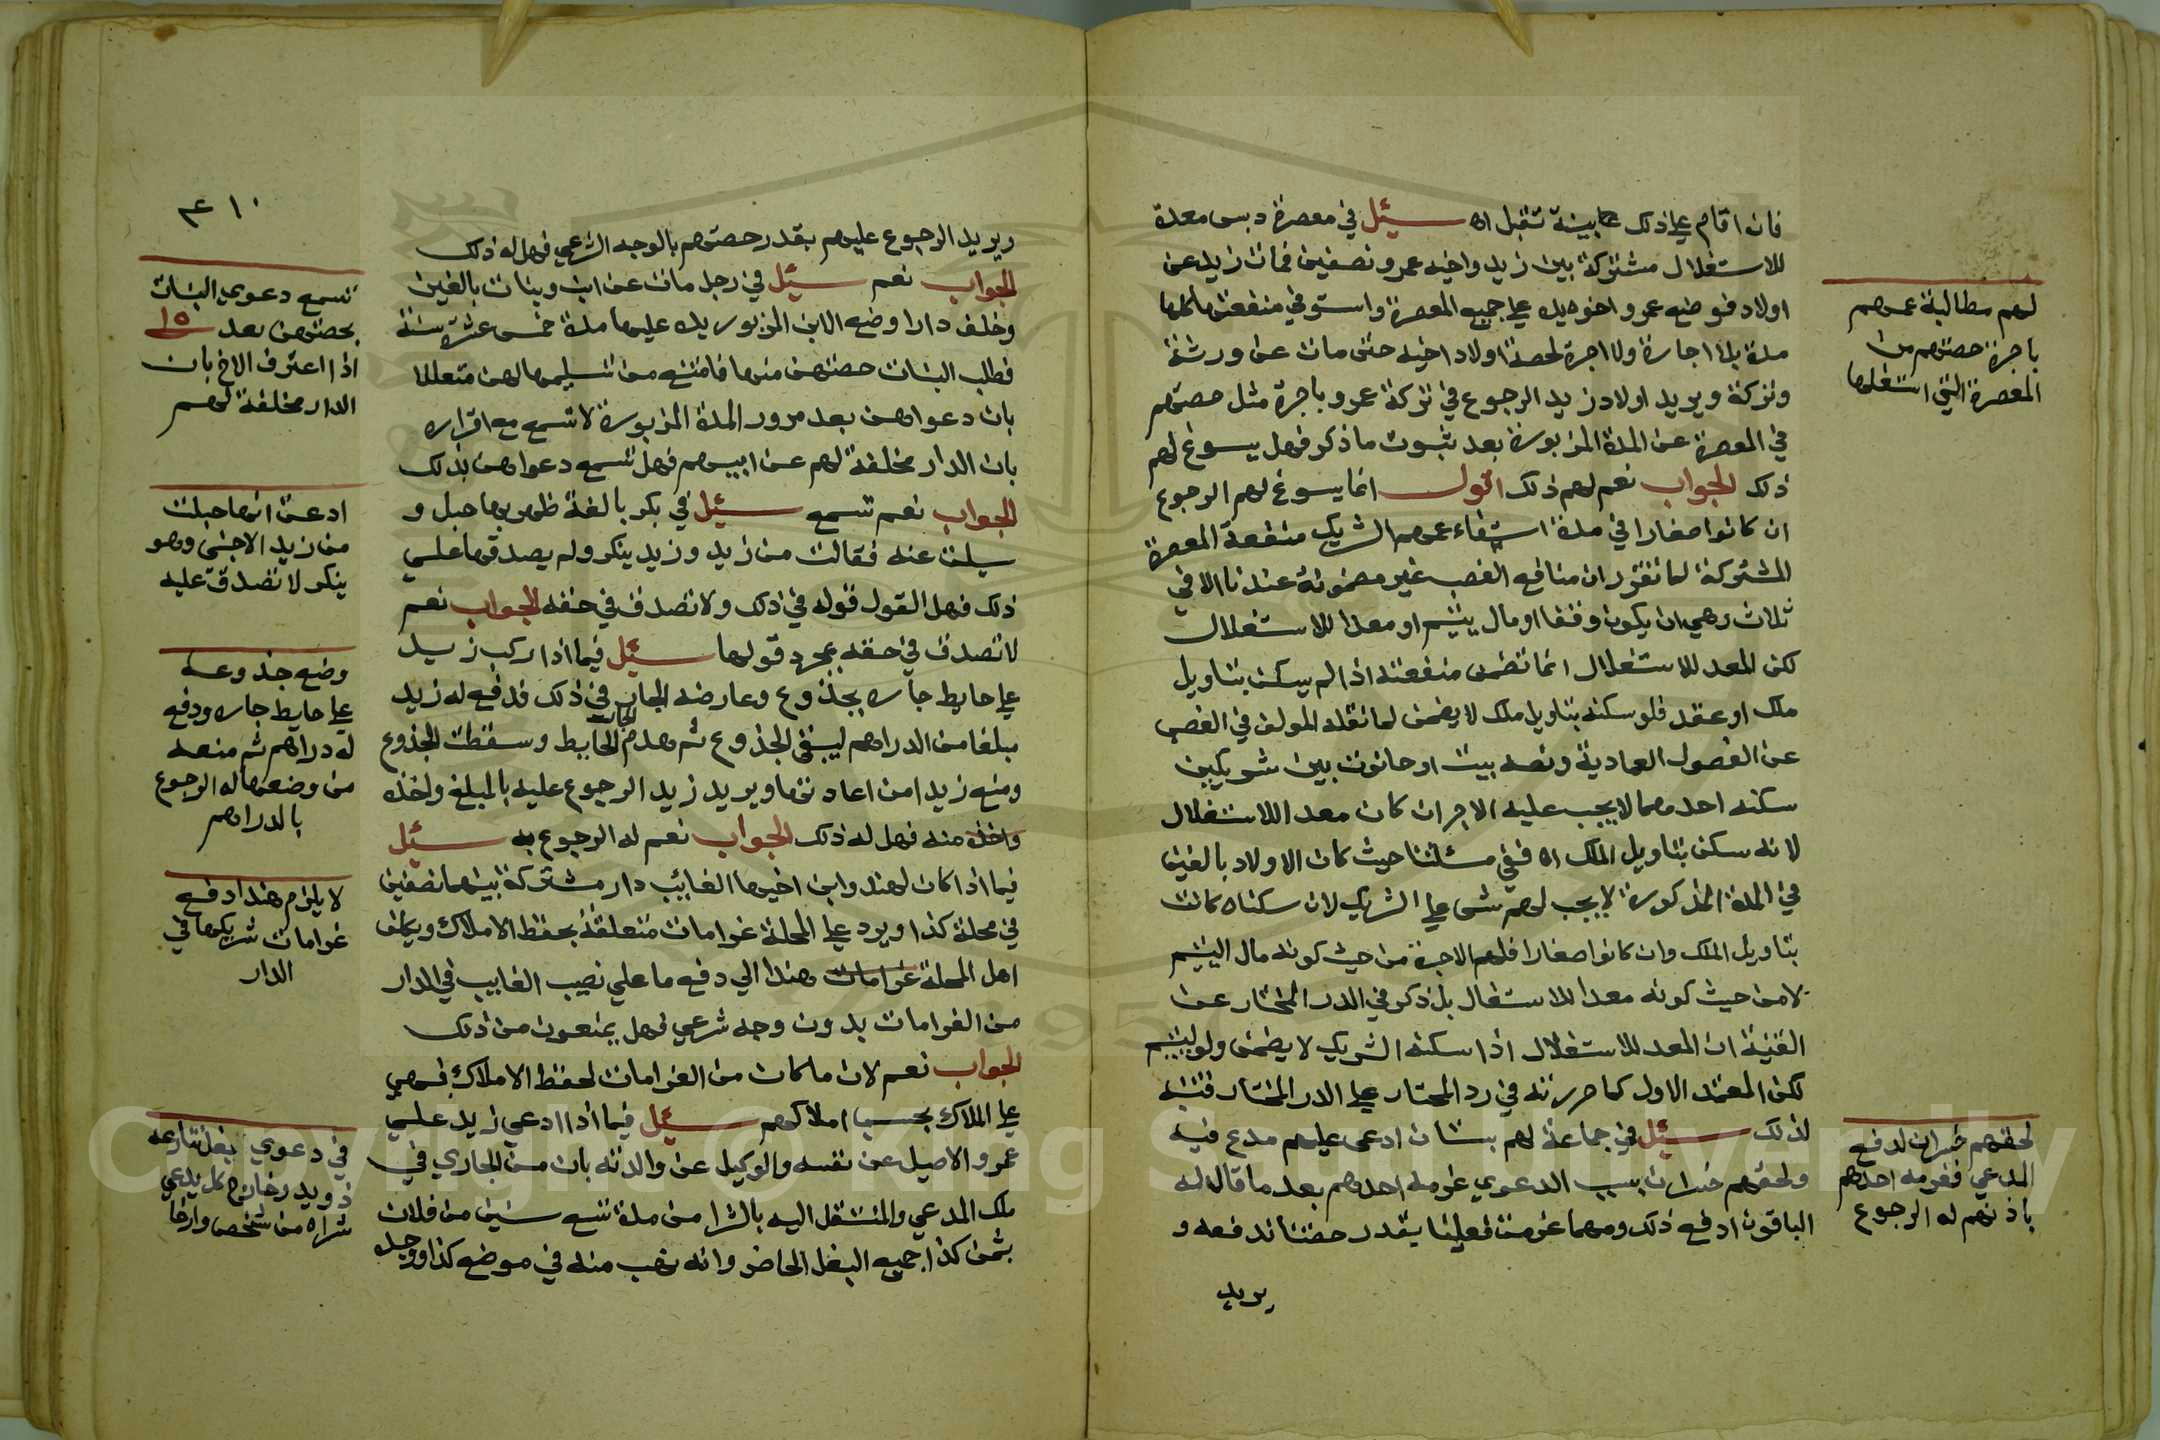 فان اقام على ذلك بينة تقبل اه سئل في معصرة دبس معدة
للاستغلال مشتركة بين زيد واخيه عمرو نصفين فمات زيد عن
اولاد فوضع عمرو اخوه يده على جميع المعصرة واستوفى منفعتها كلها
مدة بلا اجارة ولا اجرة لحصة اولاد اخيه حتى مات عن ورثة
وتركة ويريد اولاد زيد الرجوع في تركة عمرو باجرة مثل حصتهم
في المعصرة عن المدة المزبورة بعد ثبوت ما ذكر فهل يسوغ لهم
ذلك الجواب نعم لهم ذلك اقول انما يسوغ لهم الرجوع
ان كانوا صغارا في مدة استيفاء عمهم الشريك منفعة المعصرة
المشتركة لما تقرر ان منافع الغصب غير مضمونة عندنا الا في
ثلاث وهي ان يكون وقفا او مال يتيم او معدا للاستغلال
لكن المعد للاستغلال انما تضمن منفعته اذا لم يسكن بتاويل
ملك او عقد فلو سكنه بتاويل ملك لا يضمن لما نقله المولف في الغصب
عن الفصول العمادية ونصه بيت او حانوت بين شريكين
سكنه احدهما لا يجب عليه الاجر ان كان معدا للاستغلال
لانه سكن بتاويل الملك اه ففي مسئلتنا حيث كان الاولاد بالغين
في المدة المذكورة لا يجب لهم شي على الشريك لان سكناه كانت
بتاويل الملك وان كانوا صغارا فلهم الاجرة من حيث كونه مال اليتيم
لا من حيث كونه معدا للاستغلال بل ذكر في الدر المختار عن
القنية ان المعد للاستغلال اذا سكنه الشريك لا يضمن ولو ليتيم
لكن المعتمد الاول كما حررته في رد المحتار على الدر المختار فتنبه
لذلك سئل في جماعة لهم بستان ادعى عليهم مدع فيه
ولحقهم خسران بسبب الدعوي غرمه احدهم بعد ما قال له
الباقون ادفع ذلك ومهما غرمت فعلينا بقدر حصتنا فدفعه و
يريد
لهم مطالبة عمهم
باجرة حصتهم من
المعصرة التي استغلها
لحقهم خسران لدفع
المدعي فغرمه احدهم
باذنهم له الرجوع
ويريد الرجوع عليهم بقدر حصتهم بالوجه الشرعي فهل له ذلك
الجواب نعم سئل في رجل مات عن ابن وبنات بالغين
وخلف دارا وضع الابن المزبور يده عليها مدة خمس عشرة سنة
فطلب البنات حصتهن منها فامتنع من تسليمها لهن متعللا
بان دعواهن بعد مرور المدة المزبورة لا تسمع مع اقراره
بان الدار مخلفة لهم عن ابيهم فهل تسمع دعواهن بذلك
الجواب نعم تسمع سئل في بكر بالغة ظهر بها حبل و
سيلت عنه فقالت من زيد وزيد ينكر ولم يصدقها على
ذلك فهل القول قوله في ذلك ولا تصدق في حقه الجواب نعم
لا تصدق في حقه بمجرد قولها سئل فيما اذا ركب زيد
على حايط جاره بجذوع وعارضه الجار في ذلك فدفع له زيد
مبلغا من الدراهم ليبقى الجذوع ثم هدم الجار الحايط وسقطت الجذوع
ومنع زيدا من اعادتها ويريد زيد الرجوع عليه بالمبلغ واخذه
واخذه منه فهل له ذلك الجواب نعم له الرجوع به سئل
فيما اذا كان لهند وابن اخيها الغائب دار مشتركة بينهما نصفين
في محلة كذا ويرد على المحلة غرامات متعلقة بحفظ الاملاك ويكلف
اهل المحلة غرامات هندا الي دفع ما على نصيب الغايب في الدار
من الغرامات بدون وجه شرعي فهل يمنعون من ذلك
الجواب نعم لان ما كان من الغرامات لحفظ الاملاك فهي
على الملاك بحسب املاكهم سئل فيما اذا ادعي زيد على
عمرو الاصيل عن نفسه والوكيل عن والدته بان من الجاري في
ملك المدعي والمنتقل اليه بالشرا من مدة تسع سنين من فلان
بثمن كذا جميع البغل الحاضر وانه نهب منه في موضع كذا ووجده
٤١٠
تسمع دعوي البنات
بحصتهن بعد ١٥
اذا اعترف الاخ بان
الدار مخلفة لهم
ادعت انها حبلت
من زيد الاجنبي وهو
ينكر لا تصدق عليه
وضع جذوعه
على حايط جاره ودفع
له دراهم ثم منعه
من وضعها له الرجوع
بالدراهم
لا يلزم هندا دفع
غرامات شريكها في
الدار
في دعوي بغل تنازعه
ذو يد وخارج كل يدعي
شراه من شخص وارخا
Copyright © King Saud University
1957